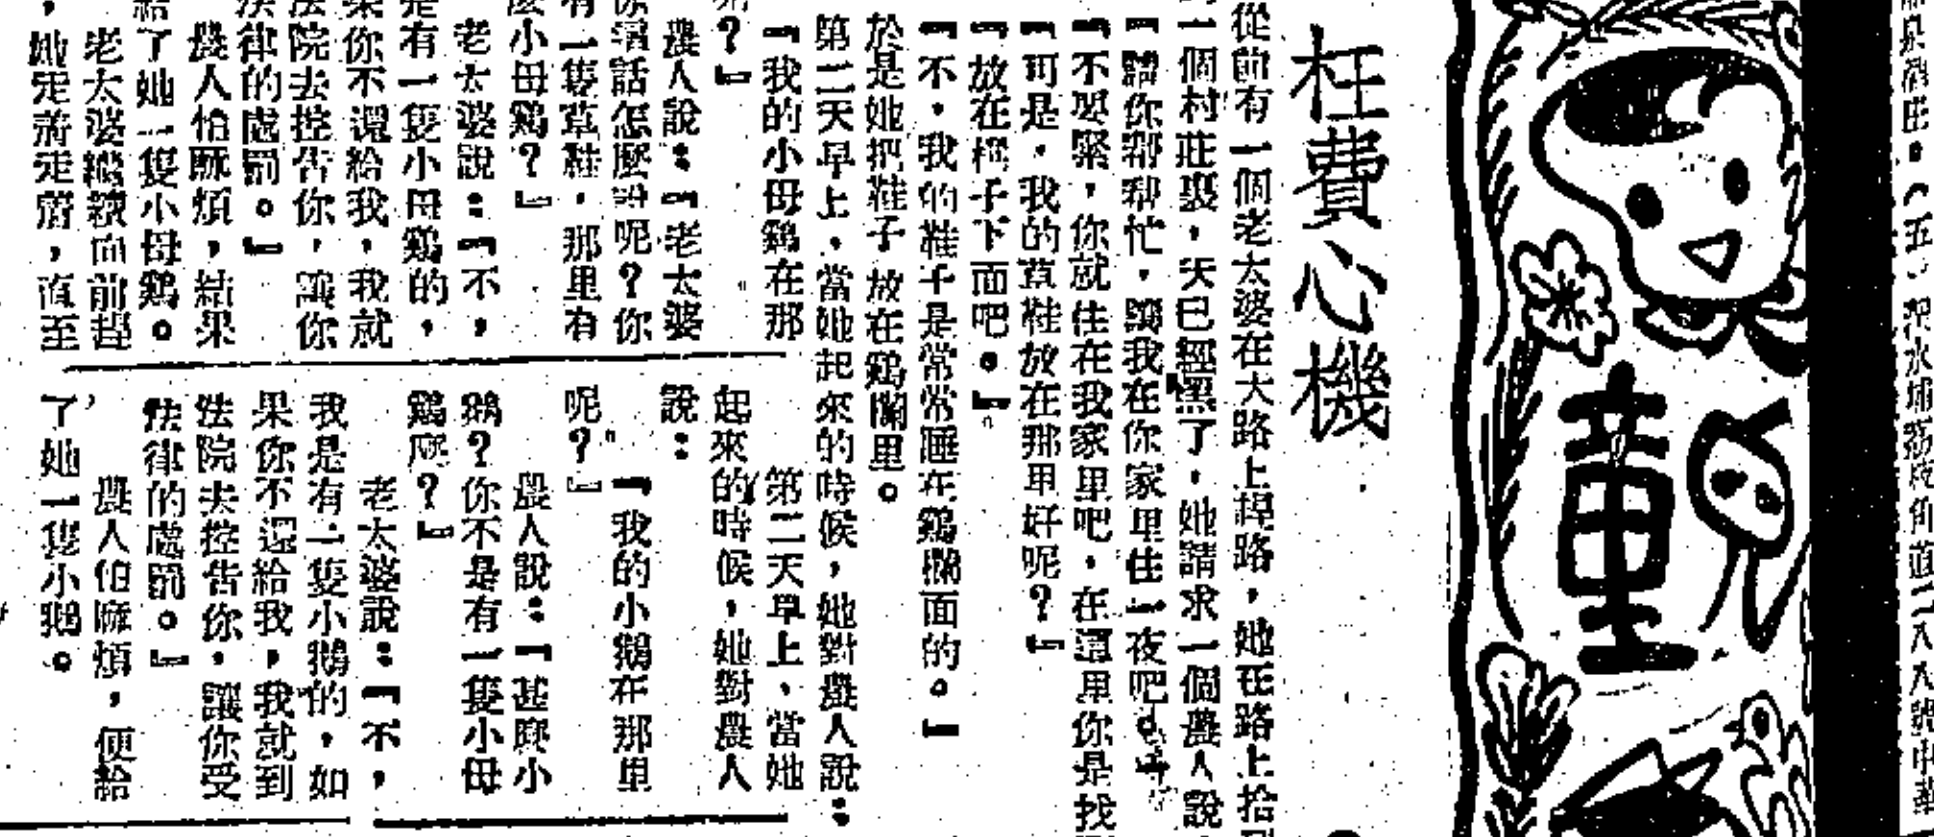 枉費心機
從前有一個老太婆在大路上趕路,她在路上拾
一個村莊裏,天已經黑了,她請求一個農人說
『請你幫幫忙,讓我在你家里住一夜吧。』
『不要緊,你就住在我家里吧,在這里你是找
『可是,我的草鞋放在那里好呢?』
『放在椅子下面吧。』
『不,我的鞋子是常常睡在鷄欄面的。』
於是她把鞋子放在鷄欄里。
第二天早上,當她起來的時候,她對農人說:
『我的小母鷄在那
?』
農人說:『老太婆
你這話怎麼說呢?你
有一隻草鞋,那里有
麼小母鷄?』
老太婆說:『不,
是有一隻小母鷄的,
果你不還給我,我就
法院去控告你,讓你
法律的處罰。』
農人怕麻煩,結果
給了她一隻小母鷄。
老太婆繼續向前趕
,她走着走着,直至
第二天早上,當她
起來的時候,她對農人
說:
『我的小鵝在那里
呢?』
農人說:『甚麼小
鵝?你不是有一隻小母
鷄麼?』
老太婆說:『不,
我是有一隻小鵝的,如
果你不還給我,我就到
法院去控告你,讓你受
法律的處罰。』
農人怕麻煩,便給
了她一隻小鵝。
童